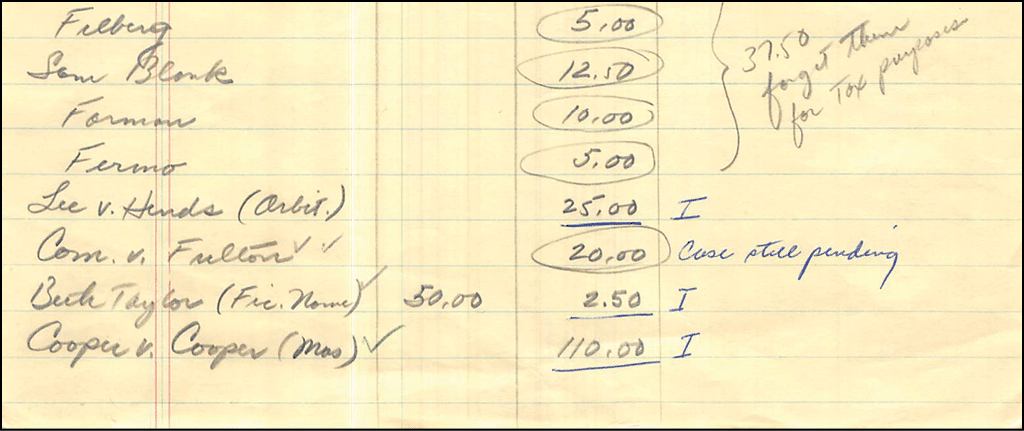 Filberg 5.00
Sam Blank 12.50
Forman 10.00
Fermo 5.00
37.50
forget them
for Tax purposes
Lee v. Hends (Orbit.) 25.00 I
Com. v. Fulton ✓✓ 20.00 Case still pending
Beth Taylor (Fic. Name) ✓ 50.00 2.50 I
Cooper v. Cooper (Mas) ✓ 110.00 I